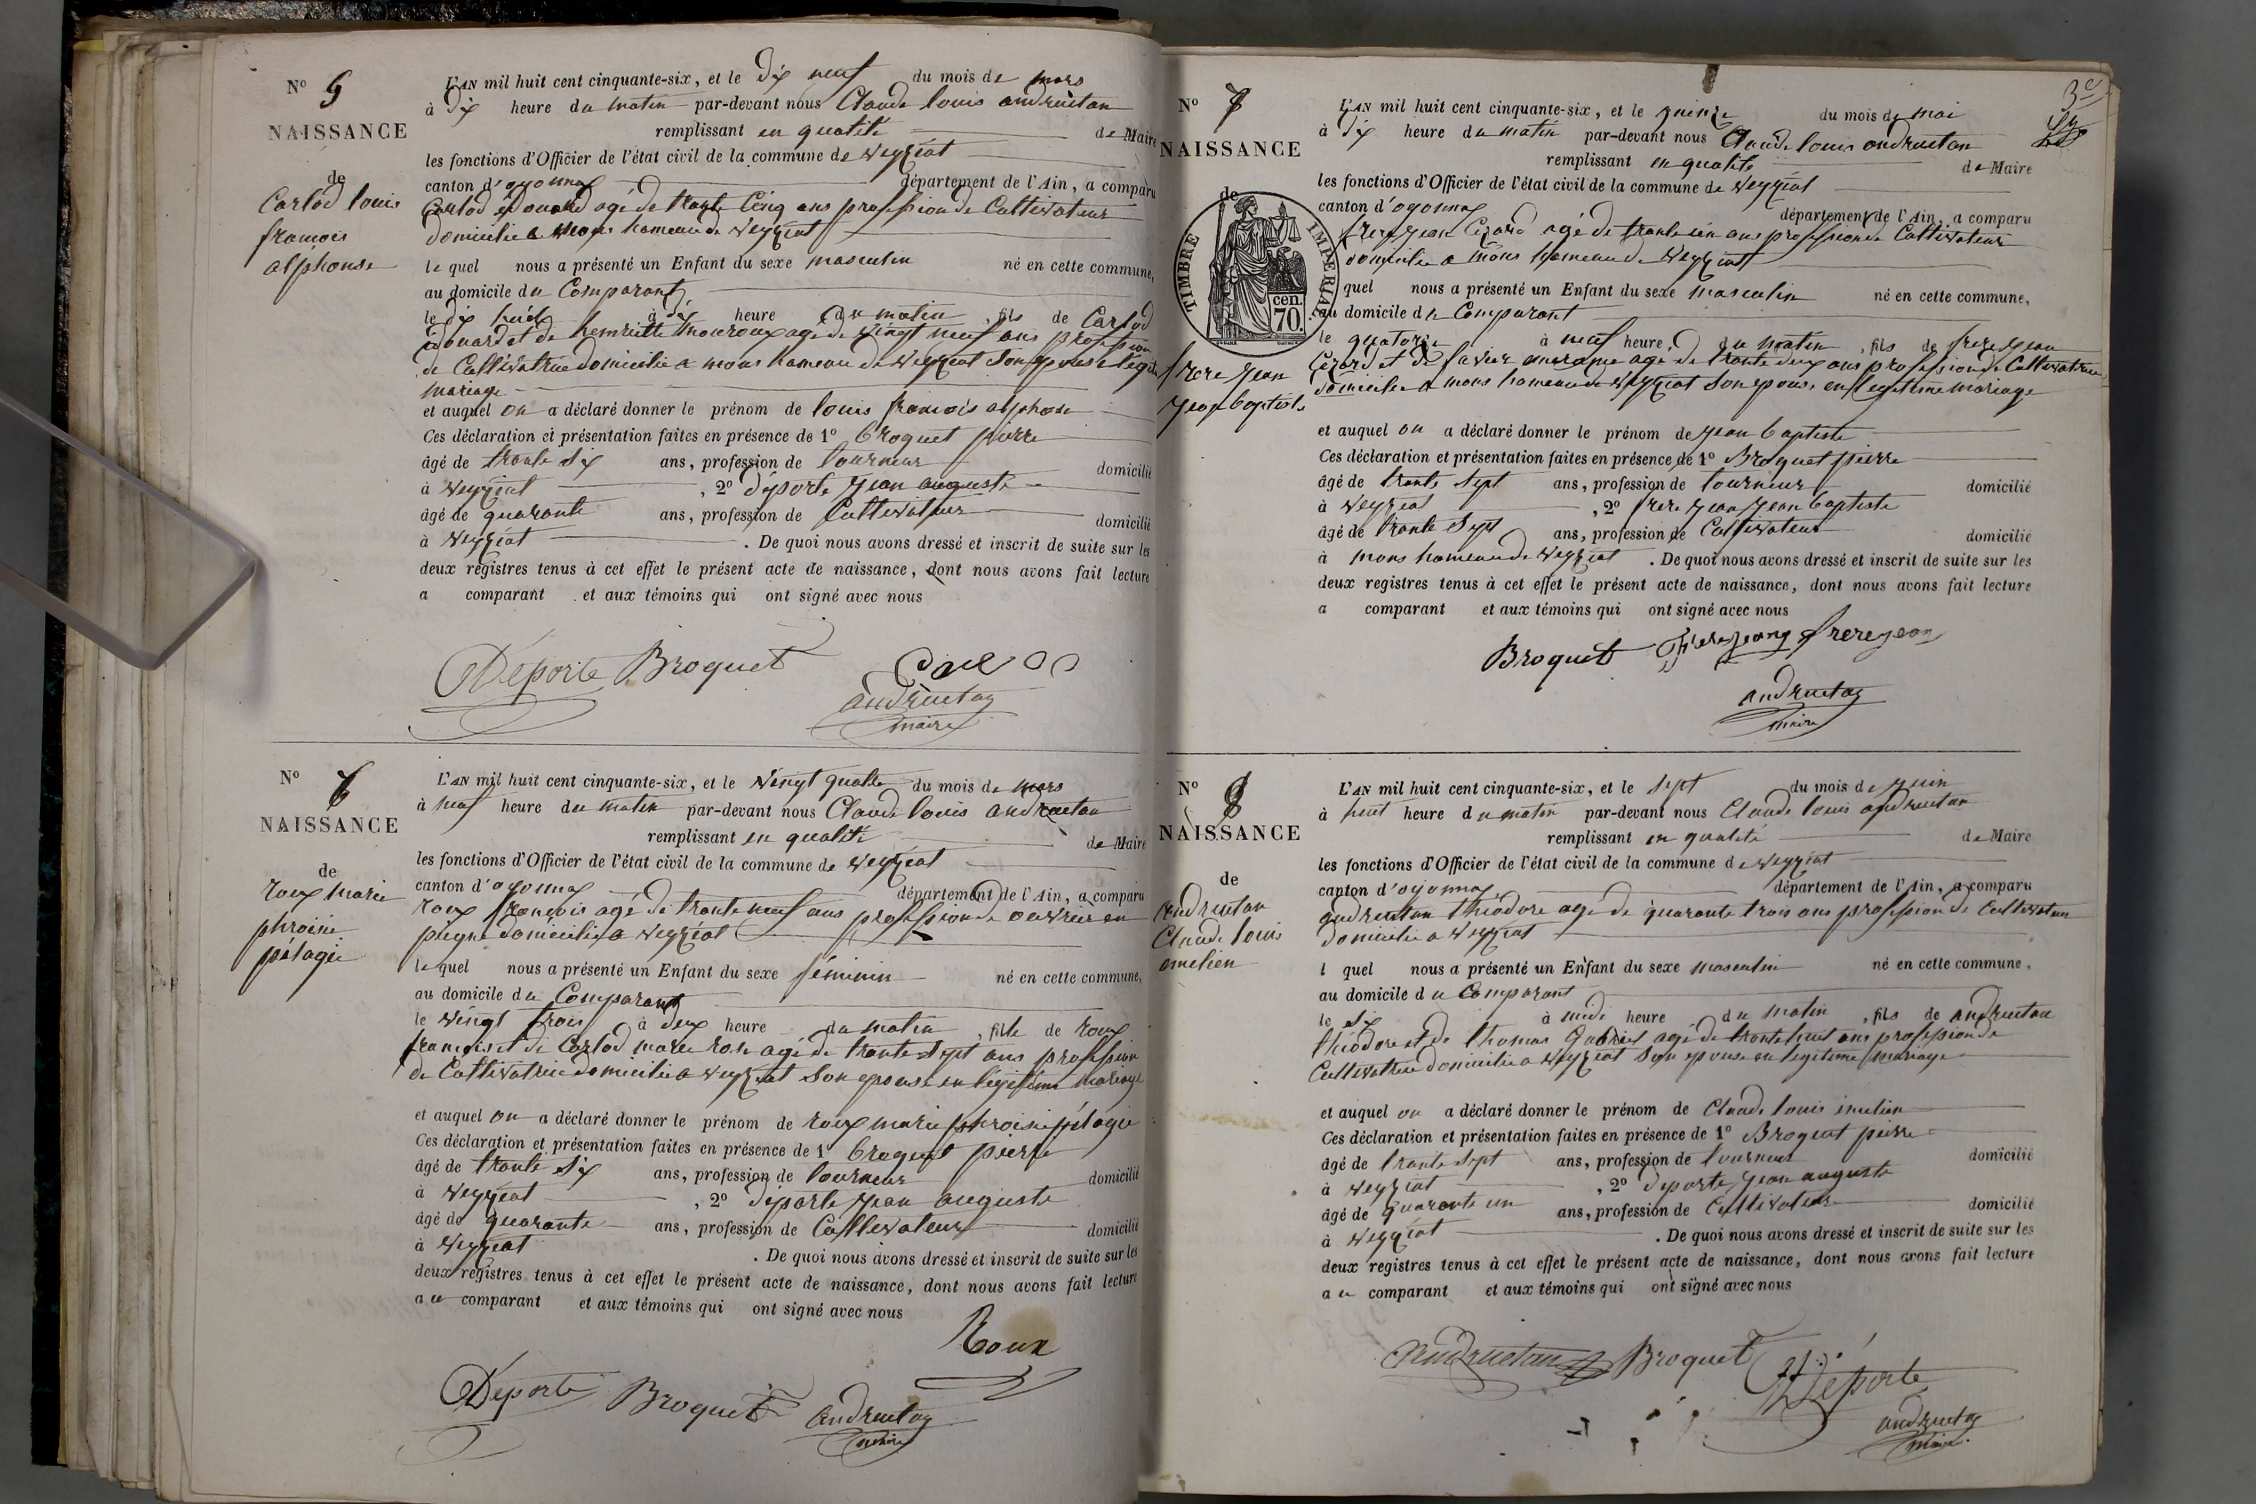 N° 5
NAISSANCE
de
Carlod louis
francois
alphonse
L'AN mil huit cent cinquante-six, et le Dix neuf du mois de mars
à Dix heure du matin par-devant nous Claude louis andruetan
remplissant en qualité de Maire
les fonctions d'Officier de l'état civil de la commune de Veyziat
canton d'oyonnax département de l'Ain, a comparu
Carlod edouard agé de trente Cinq ans profession de Cultivateur
domicilié a mons hameau de Veyziat
le quel nous a présenté un Enfant du sexe masculin né en cette commune,
au domicile du Comparant
le dix huit à dix heure du matin, fils de Carlod
edouard et de henriette mouroux agé de vingt neuf ans profession
de Cultivatrice domicilié a mons hameau de Veyziat son epouse
mariage
et auquel on a déclaré donner le prénom de louis francois alphonse
Ces déclaration et présentation faites en présence de 1° broquet pierre
âgé de trente six ans, profession de tourneur domicilié
à Veyziat, 2° déporte jean auguste
âgé de quarante ans, profession de Cultivateur domicilié
à Veyziat. De quoi nous avons dressé et inscrit de suite sur les
deux registres tenus à cet effet le présent acte de naissance, dont nous avons fait lecture
a comparant et aux témoins qui ont signé avec nous
Déporte Broquet
andruetan
maire
N° 6
NAISSANCE
de
roux marie
phroisine
pélagie
L'AN mil huit cent cinquante-six, et le Vingt quatre du mois de mars
à neuf heure du matin par-devant nous Claude louis andruetan
remplissant en qualité de Maire
les fonctions d'Officier de l'état civil de la commune de Veyziat
canton d'oyonnax département de l'Ain, a comparu
roux françois agé de trente neuf ans profession de ouvrier en
peigne domicilié a Veyziat
le quel nous a présenté un Enfant du sexe féminin né en cette commune,
au domicile du Comparant
le vingt trois à deux heure du matin, fille de roux
francois et de Carlod marie rose agé de trente sept ans profession
de Cultivatrice domicilié a veyziat son epouse en légitime mariage
et auquel on a déclaré donner le prénom de roux marie phroisine pélagie
Ces déclaration et présentation faites en présence de 1° broquet pierre
âgé de trente six ans, profession de tourneur domicilié
à Veyziat, 2° déporte jean auguste
âgé de quarante ans, profession de Cultivateur domicilié
à Veyziat. De quoi nous avons dressé et inscrit de suite sur les
deux registres tenus à cet effet le présent acte de naissance, dont nous avons fait lecture
a u comparant et aux témoins qui ont signé avec nous
Roux
Déporte Broquet andruetan
maire
3e
N° 7
NAISSANCE
de
TIMBRE IMPERIAL
70 cen.
frere jean
jean baptiste
L'AN mil huit cent cinquante-six, et le quinze du mois de mai
à dix heure du matin par-devant nous Claude louis andruetan
remplissant en qualité de Maire
les fonctions d'Officier de l'état civil de la commune de Veyziat
canton d'oyonnax département de l'Ain, a comparu
frere jean Cézard agé de trente un ans profession de Cultivateur
domicilié a mons hameau de Veyziat
quel nous a présenté un Enfant du sexe masculin né en cette commune,
au domicile du Comparant
le quatorze à neuf heure, du matin, fils de frere jean
Cézard et de favier agé de trente deux ans profession de Cultivatrice
domicilié a mons hameau de Veyziat son epouse en legitime mariage
et auquel on a déclaré donner le prénom de jean baptiste
Ces déclaration et présentation faites en présence de 1° Broquet pierre
âgé de trente sept ans, profession de tourneur domicilié
à Veyziat, 2° frere jean jean baptiste
âgé de trente sept ans, profession de Cultivateur domicilié
à mons hameau de Veyziat. De quoi nous avons dressé et inscrit de suite sur les
deux registres tenus à cet effet le présent acte de naissance, dont nous avons fait lecture
a comparant et aux témoins qui ont signé avec nous
Broquet Frerejean frerejean
andruetan
maire
N° 8
NAISSANCE
de
andruetan
Claude louis
emelien
L'AN mil huit cent cinquante-six, et le sept du mois de juin
à huit heure du matin par-devant nous Claude louis andruetan
remplissant en qualité de Maire
les fonctions d'Officier de l'état civil de la commune de Veyziat
canton d'oyonnax département de l'Ain, a comparu
andruetan théodore agé de quarante trois ans profession de Cultivateur
domicilié a Veyziat
l quel nous a présenté un Enfant du sexe masculin né en cette commune,
au domicile d u Comparant
le six à midi heure du matin, fils de andruetan
théodore et de thomas gabriel agé de trente huit ans profession de
Cultivatrice domicilié a Veyziat son epouse en legitime mariage
et auquel on a déclaré donner le prénom de Claude louis emelien
Ces déclaration et présentation faites en présence de 1° Broquet pierre
âgé de trente sept ans, profession de tourneur domicilié
à Veyziat, 2° deporte jean auguste
âgé de quarante un ans, profession de Cultivateur domicilié
à Veyziat. De quoi nous avons dressé et inscrit de suite sur les
deux registres tenus à cet effet le présent acte de naissance, dont nous avons fait lecture
a u comparant et aux témoins qui ont signé avec nous
andruetan Broquet Déporte
andruetan
maire